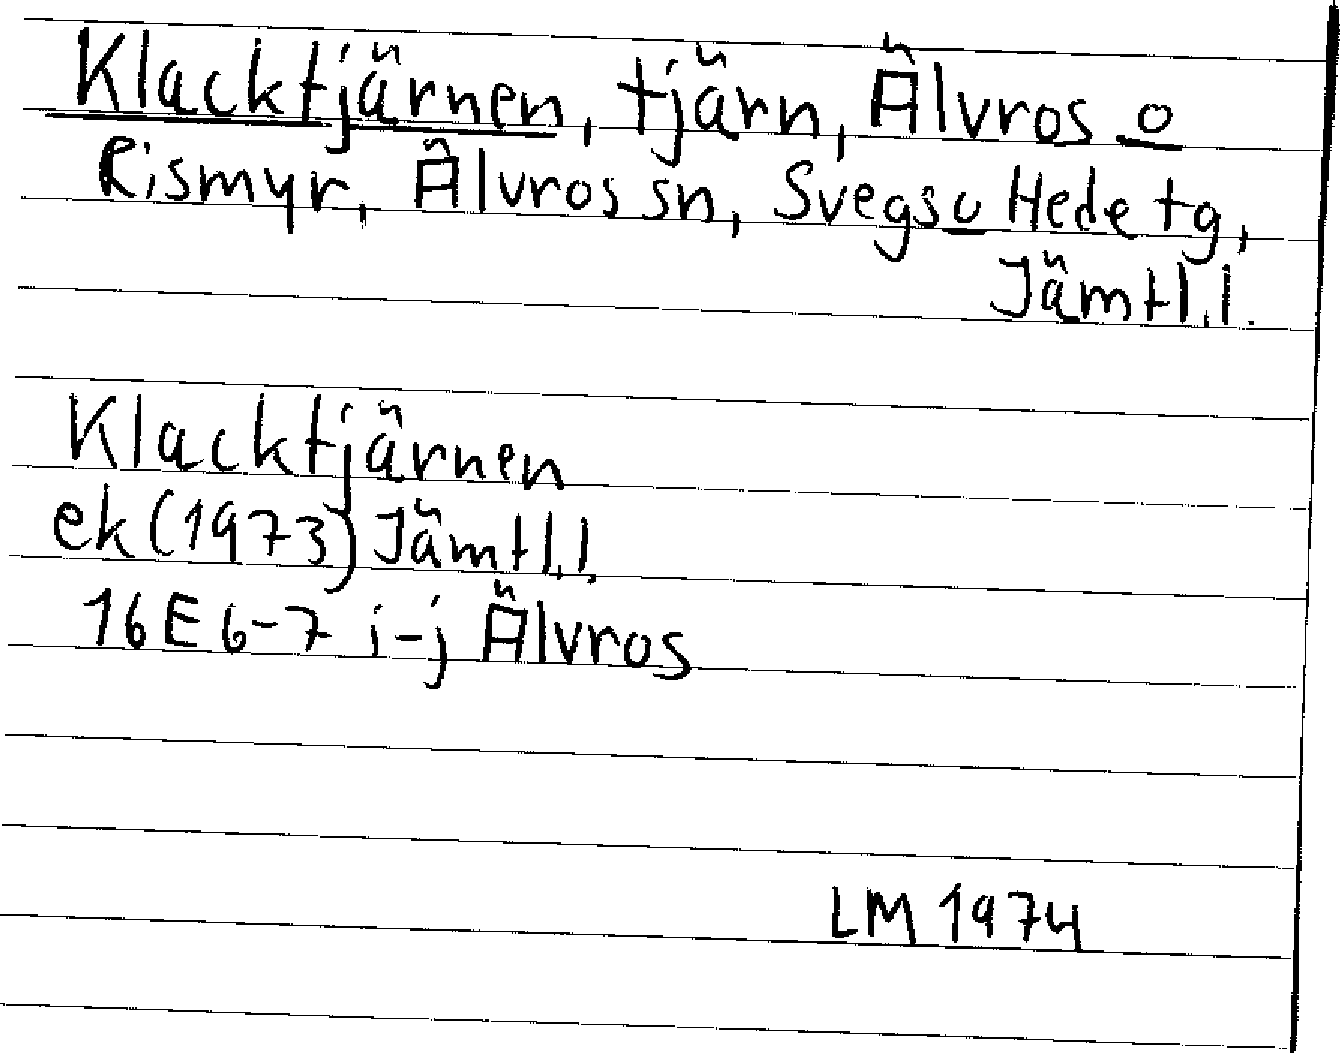 Klacktjärnen, tjärn, Älvros o
Rismyr, Älvros sn, Svegs o Hede tg,
Jämtl. l.
Klacktjärnen
ek (1973) Jämtl. l.
16E 6-7 i-j Älvros
LM 1974